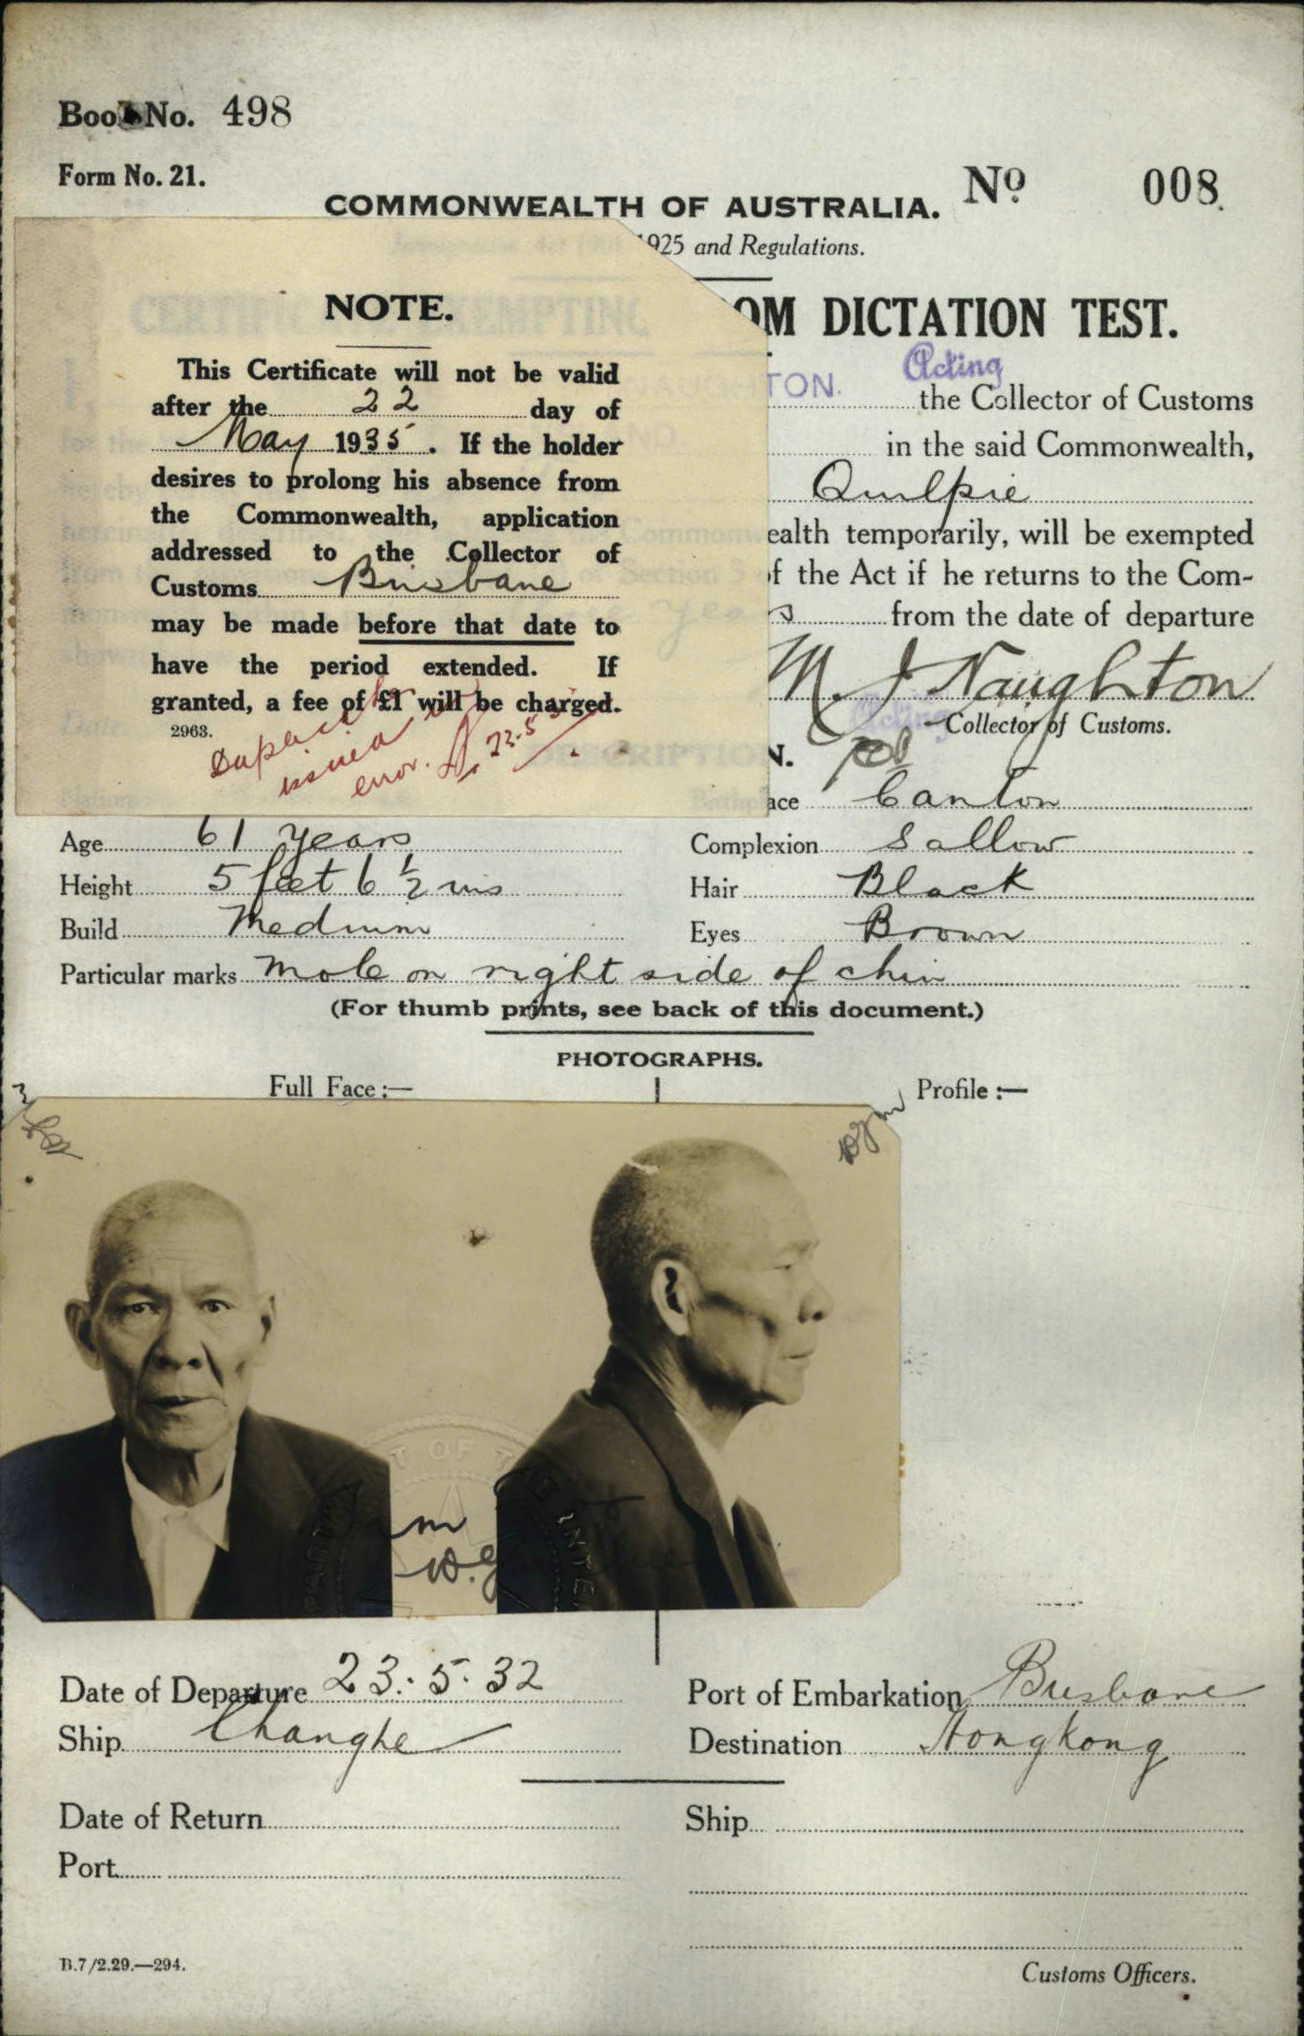 Book No. 498
Form No. 21.
No. 008
COMMONWEALTH OF AUSTRALIA.
1925 and Regulations.
CERTIFIC EXEMPTING OM DICTATION TEST.
NOTE.
This Certificate will not be valid
after the 22 day of
May 1935. If the holder
desires to prolong his absence from
the Commonwealth, application
addressed to the Collector of
Customs Brisbane
may be made before that date to
have the period extended. If
granted, a fee of £1 will be charged.
2963.
Duplicate
issued in
error. 22.5
TON. Acting
the Collector of Customs
in the said Commonwealth,
Quilpie
ealth temporarily, will be exempted
of the Act if he returns to the Com-
s from the date of departure
M. J. Naughton
Acting
Collector of Customs.
DESCRIPTION.
Birthplace Canton
Age 61 years
Complexion Sallow
Height 5 feet 6 1/2 ins
Hair Black
Build Medium
Eyes Brown
Particular marks Mole on right side of chin
(For thumb prints, see back of this document.)
PHOTOGRAPHS.
Full Face:—
Profile:—
Date of Departure 23.5.32
Port of Embarkation Brisbane
Ship Changte
Destination Hongkong
Date of Return
Ship
Port
B.7/2.29.—294.
Customs Officers.